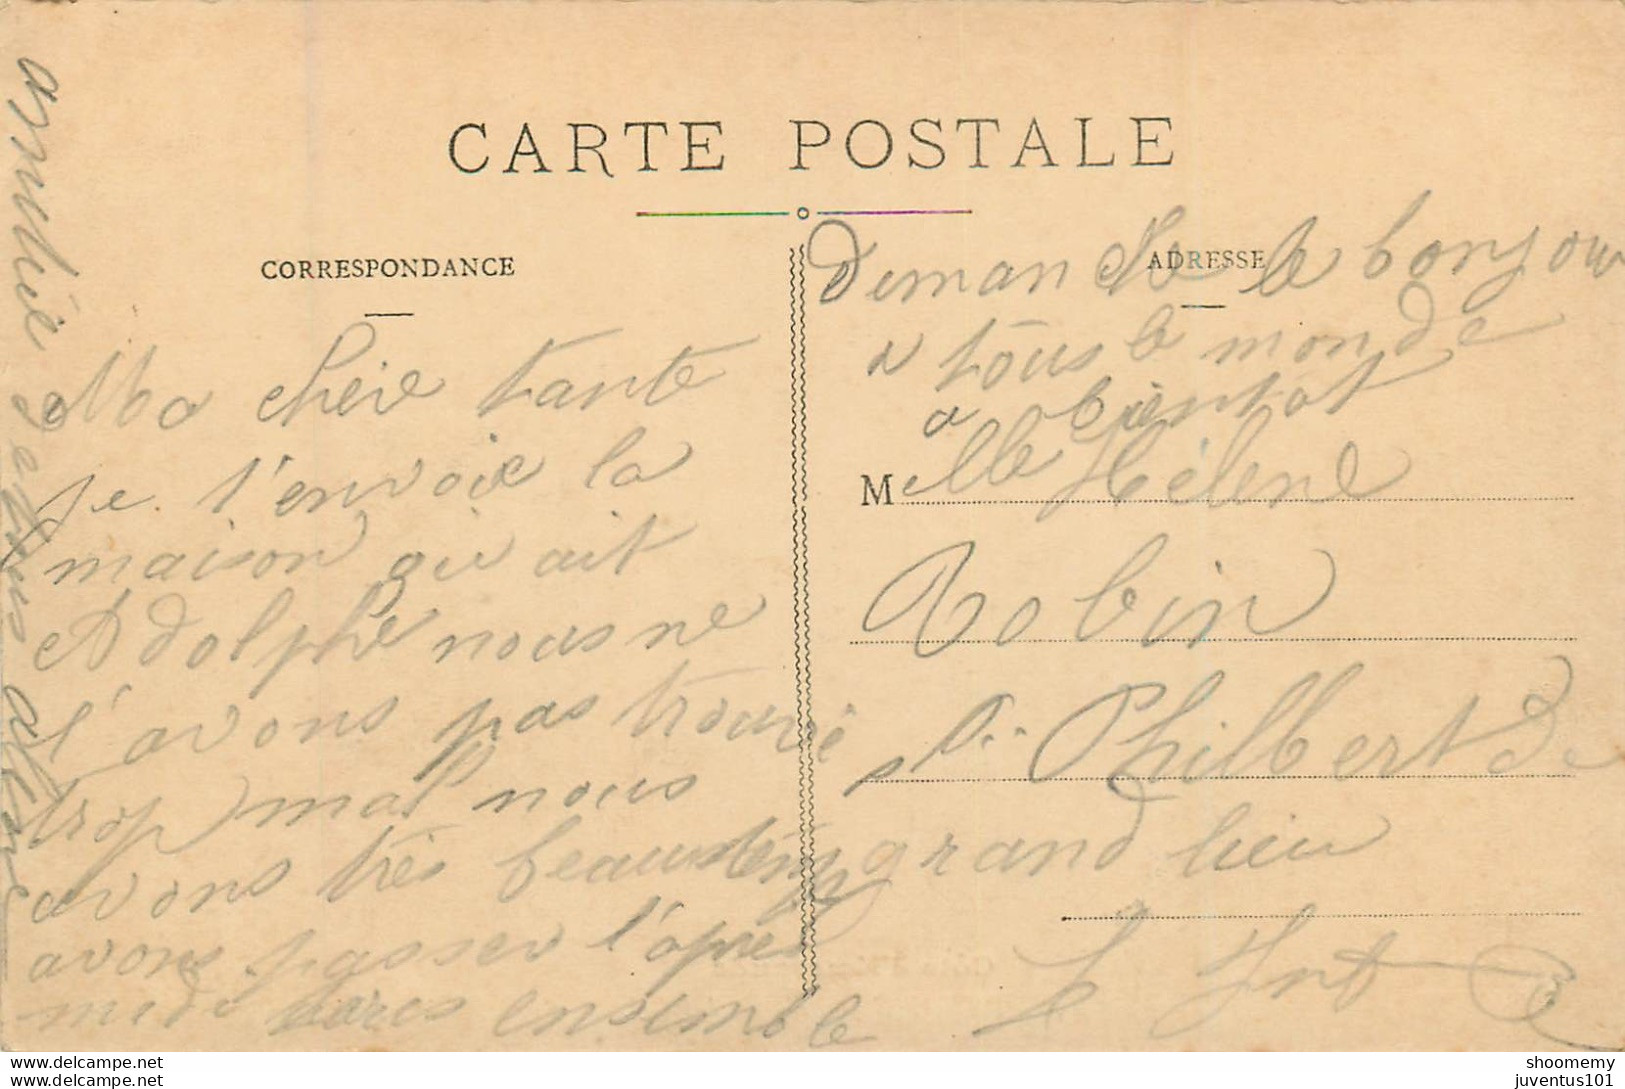 CARTE POSTALE
CORRESPONDANCE
ADRESSE
Ma chère tante
je t'envoie la
maison qui ait
Adolphe nous ne
l'avons pas trouvé
trop mal nous
avons très beau temps
avons passer l'après
midi ensemble
Dimanche le bonjour
a tous le monde
a bientot
Melle Hélène
Robin
St Philbert de
grand lieu
L Inf
Visit juventus101's Store On Delcampe
shoomemy
juventus101